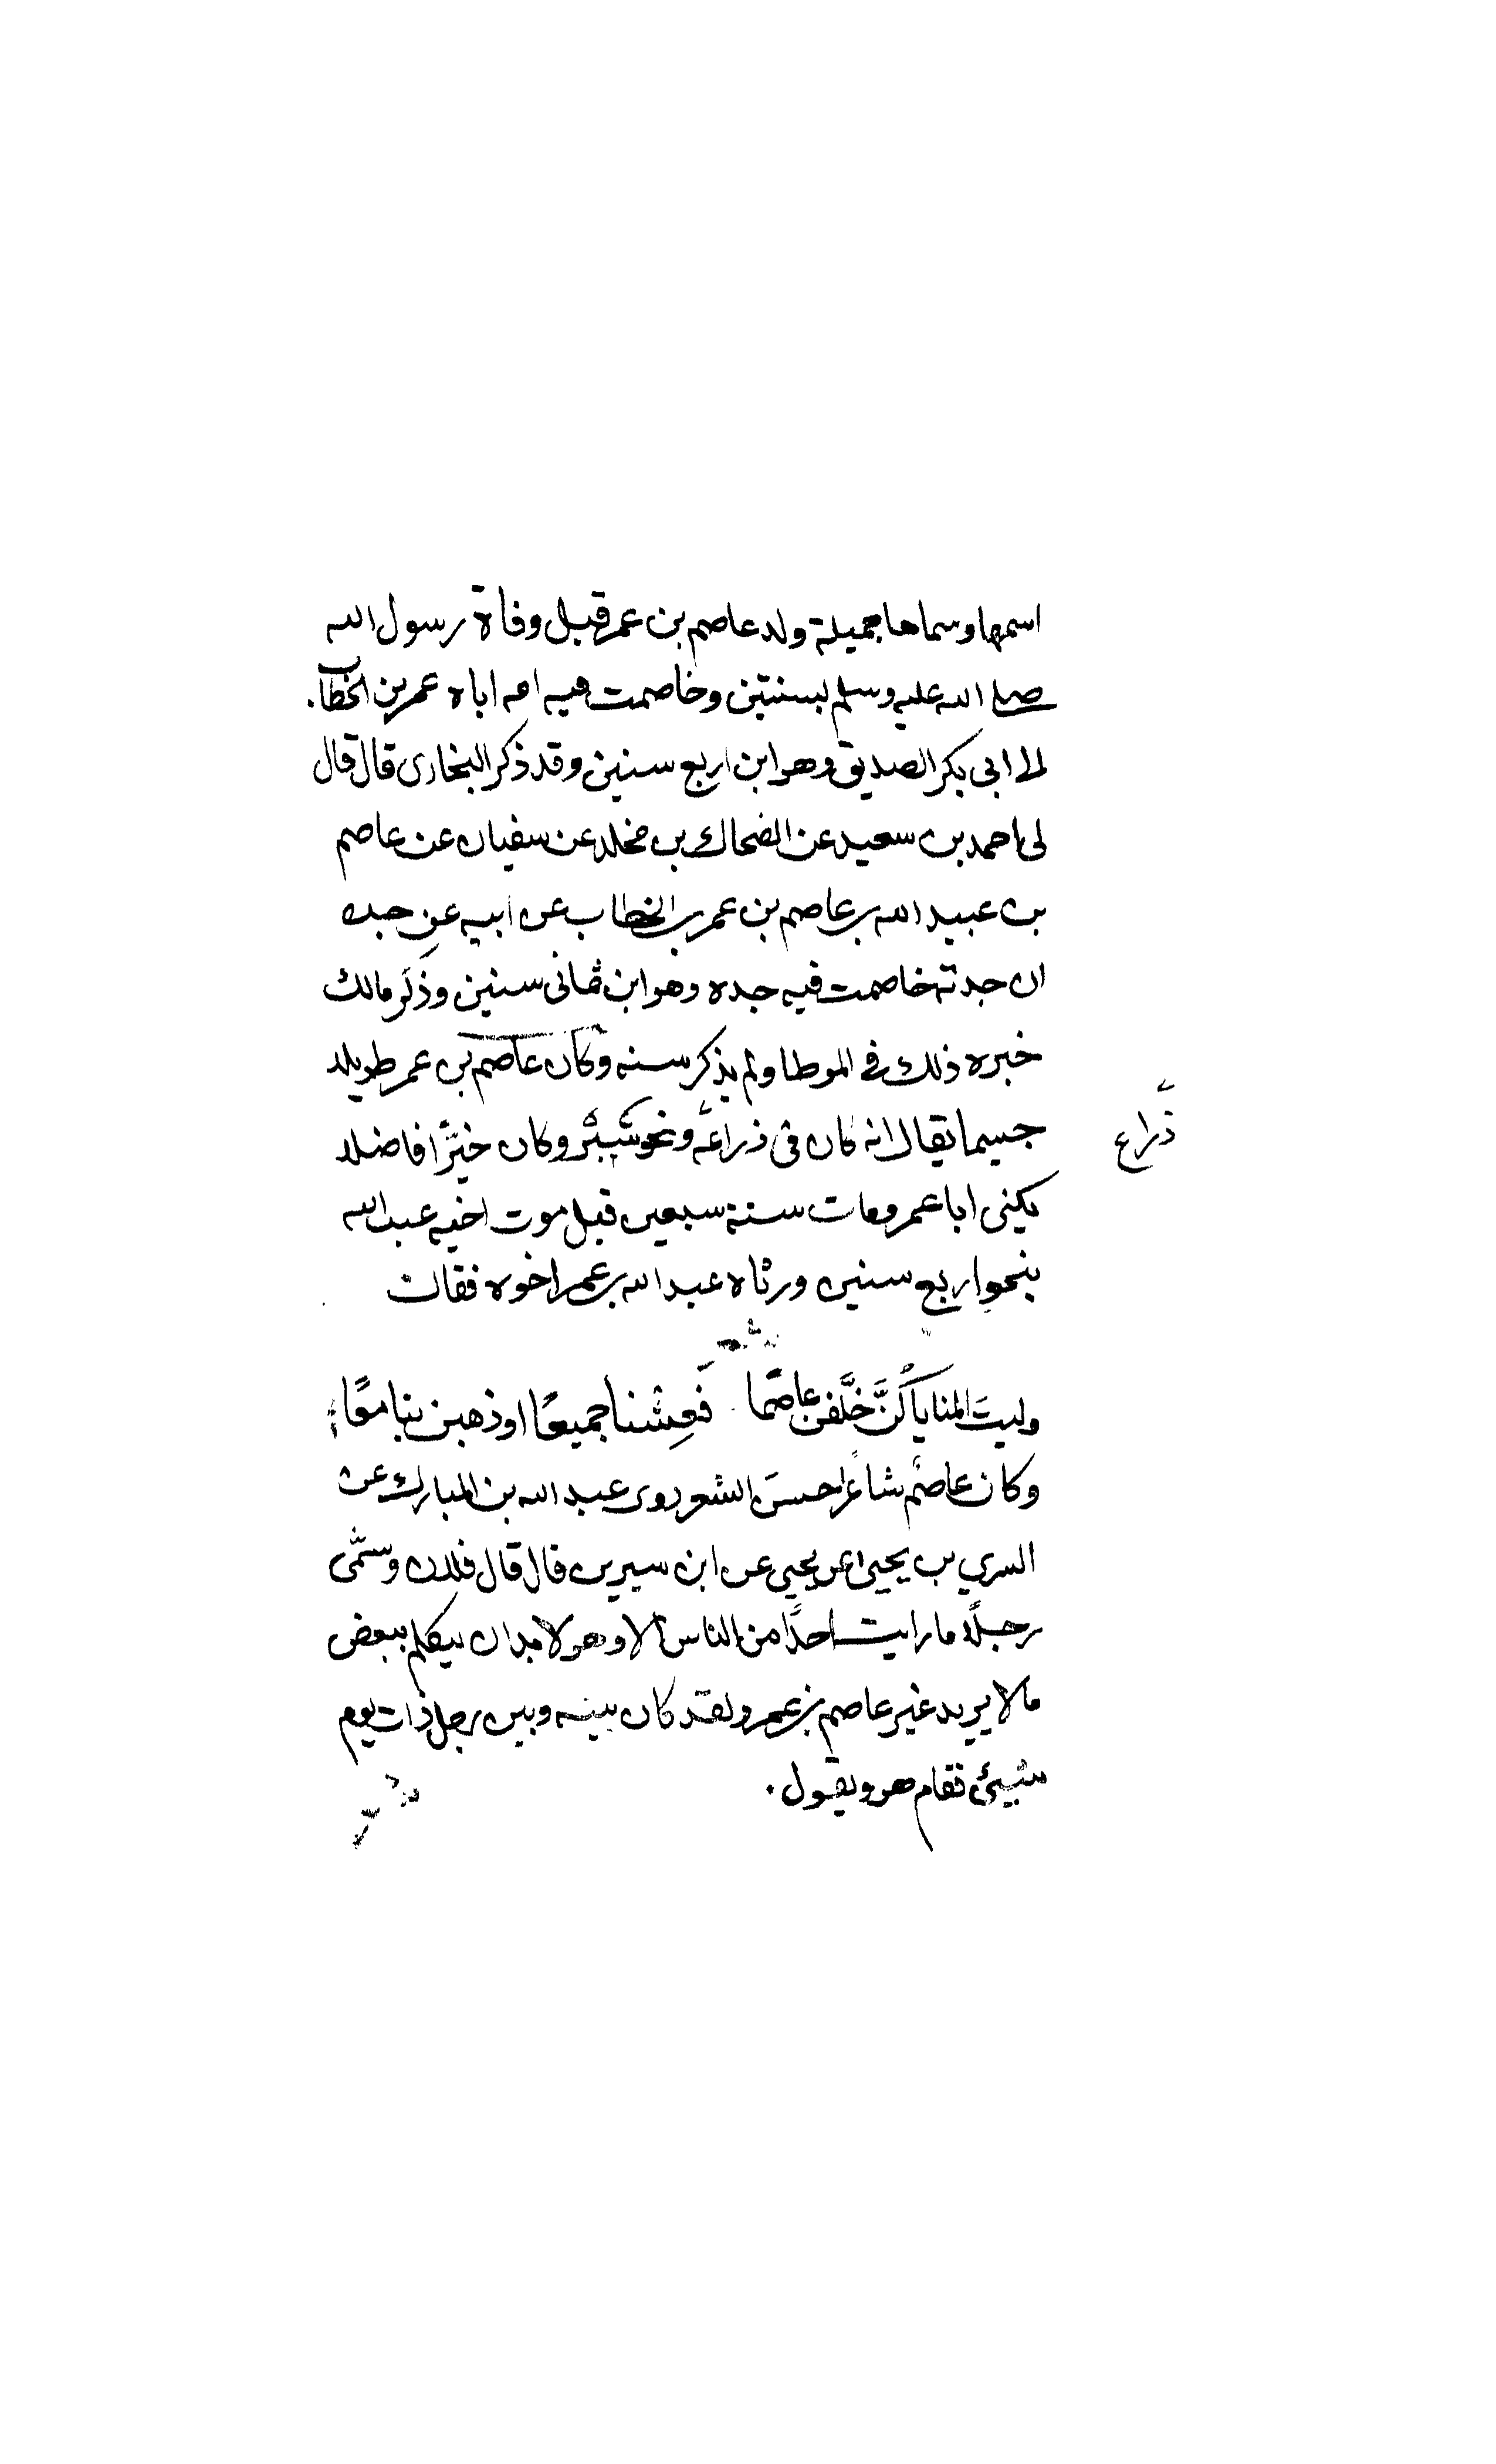 اسمها وسماها جميلة ولد عاصم بن عمر قبل وفاة رسول الله
صلى الله عليه وسلم بسنتين وخاصمت فيه امه اباه عمر بن الخطاب.
الى ابى بكر الصديق وهو ابن اربع سنين وقد ذكر البخارى قال قال
لى احمد بن سعيد عن الضحاك بن مخلد عن سفيان عن عاصم
بن عبيد الله بن عاصم بن عمر بن الخطاب عن ابيه عن جده
ان جدته خاصمت فيه جده وهو ابن ثمانى سنين وذكر مالك
خبره ذلك فى الموطا ولم يذكر سنه وكان عاصم بن عمر طويلا
جسيما يقال انه كان فى ذراعه ونحو شبر وكان خيّرا فاضلا
ذراع
يكنى ابا عمر ومات سنة سبعين قبل موت اخيه عبد الله
بنحو اربع سنين ورثاه عبد الله بن عمر اخوه فقال
شعر
وليتَ المنايا كُنَّ خلَّفن عاصمًا فعِشنا جميعًا او ذهبن بنا معًا
وكان عاصمٌ شاعرًا حسنَ الشعر روى عبد الله بن المبارك عن
السري بن يحيى عن يحيى عن ابن سيرين قال قال فلان وسمّى
رجلًا ما رايت احدًا من الناس الا وهو لا بد ان يتكلم ببعض
ما لا يريد غير عاصم بن عمر ولقد كان بينه وبين رجل ذات يوم
شيئ فقام هو ويقول.
شعر